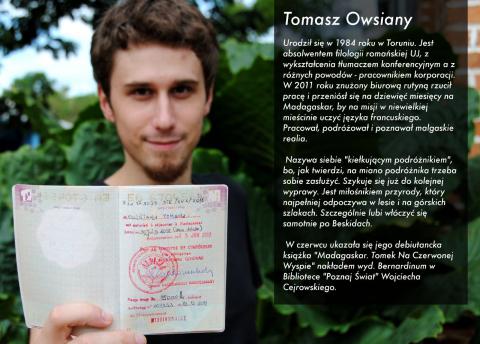 Tomasz Owsiany
Urodził się w 1984 roku w Toruniu. Jest
absolwentem filologii romańskiej UJ, z
wykształcenia tłumaczem konferencyjnym a z
różnych powodów - pracownikiem korporacji.
W 2011 roku znużony biurową rutyną rzucił
pracę i przeniósł się na dziewięć miesięcy na
Madagaskar, by na misji w niewielkiej
mieścinie uczyć języka francuskiego.
Pracował, podróżował i poznawał malgaskie
realia.
Nazywa siebie "kiełkującym podróżnikiem",
bo, jak twierdzi, na miano podróżnika trzeba
sobie zasłużyć. Szykuje się już do kolejnej
wyprawy. Jest miłośnikiem przyrody, który
najpełniej odpoczywa w lesie i na górskich
szlakach. Szczególnie lubi włóczyć się
samotnie po Beskidach.
W czerwcu ukazała się jego debiutancka
książka "Madagaskar. Tomek Na Czerwonej
Wyspie" nakładem wyd. Bernardinum w
Bibliotece "Poznaj Świat" Wojciecha
Cejrowskiego.